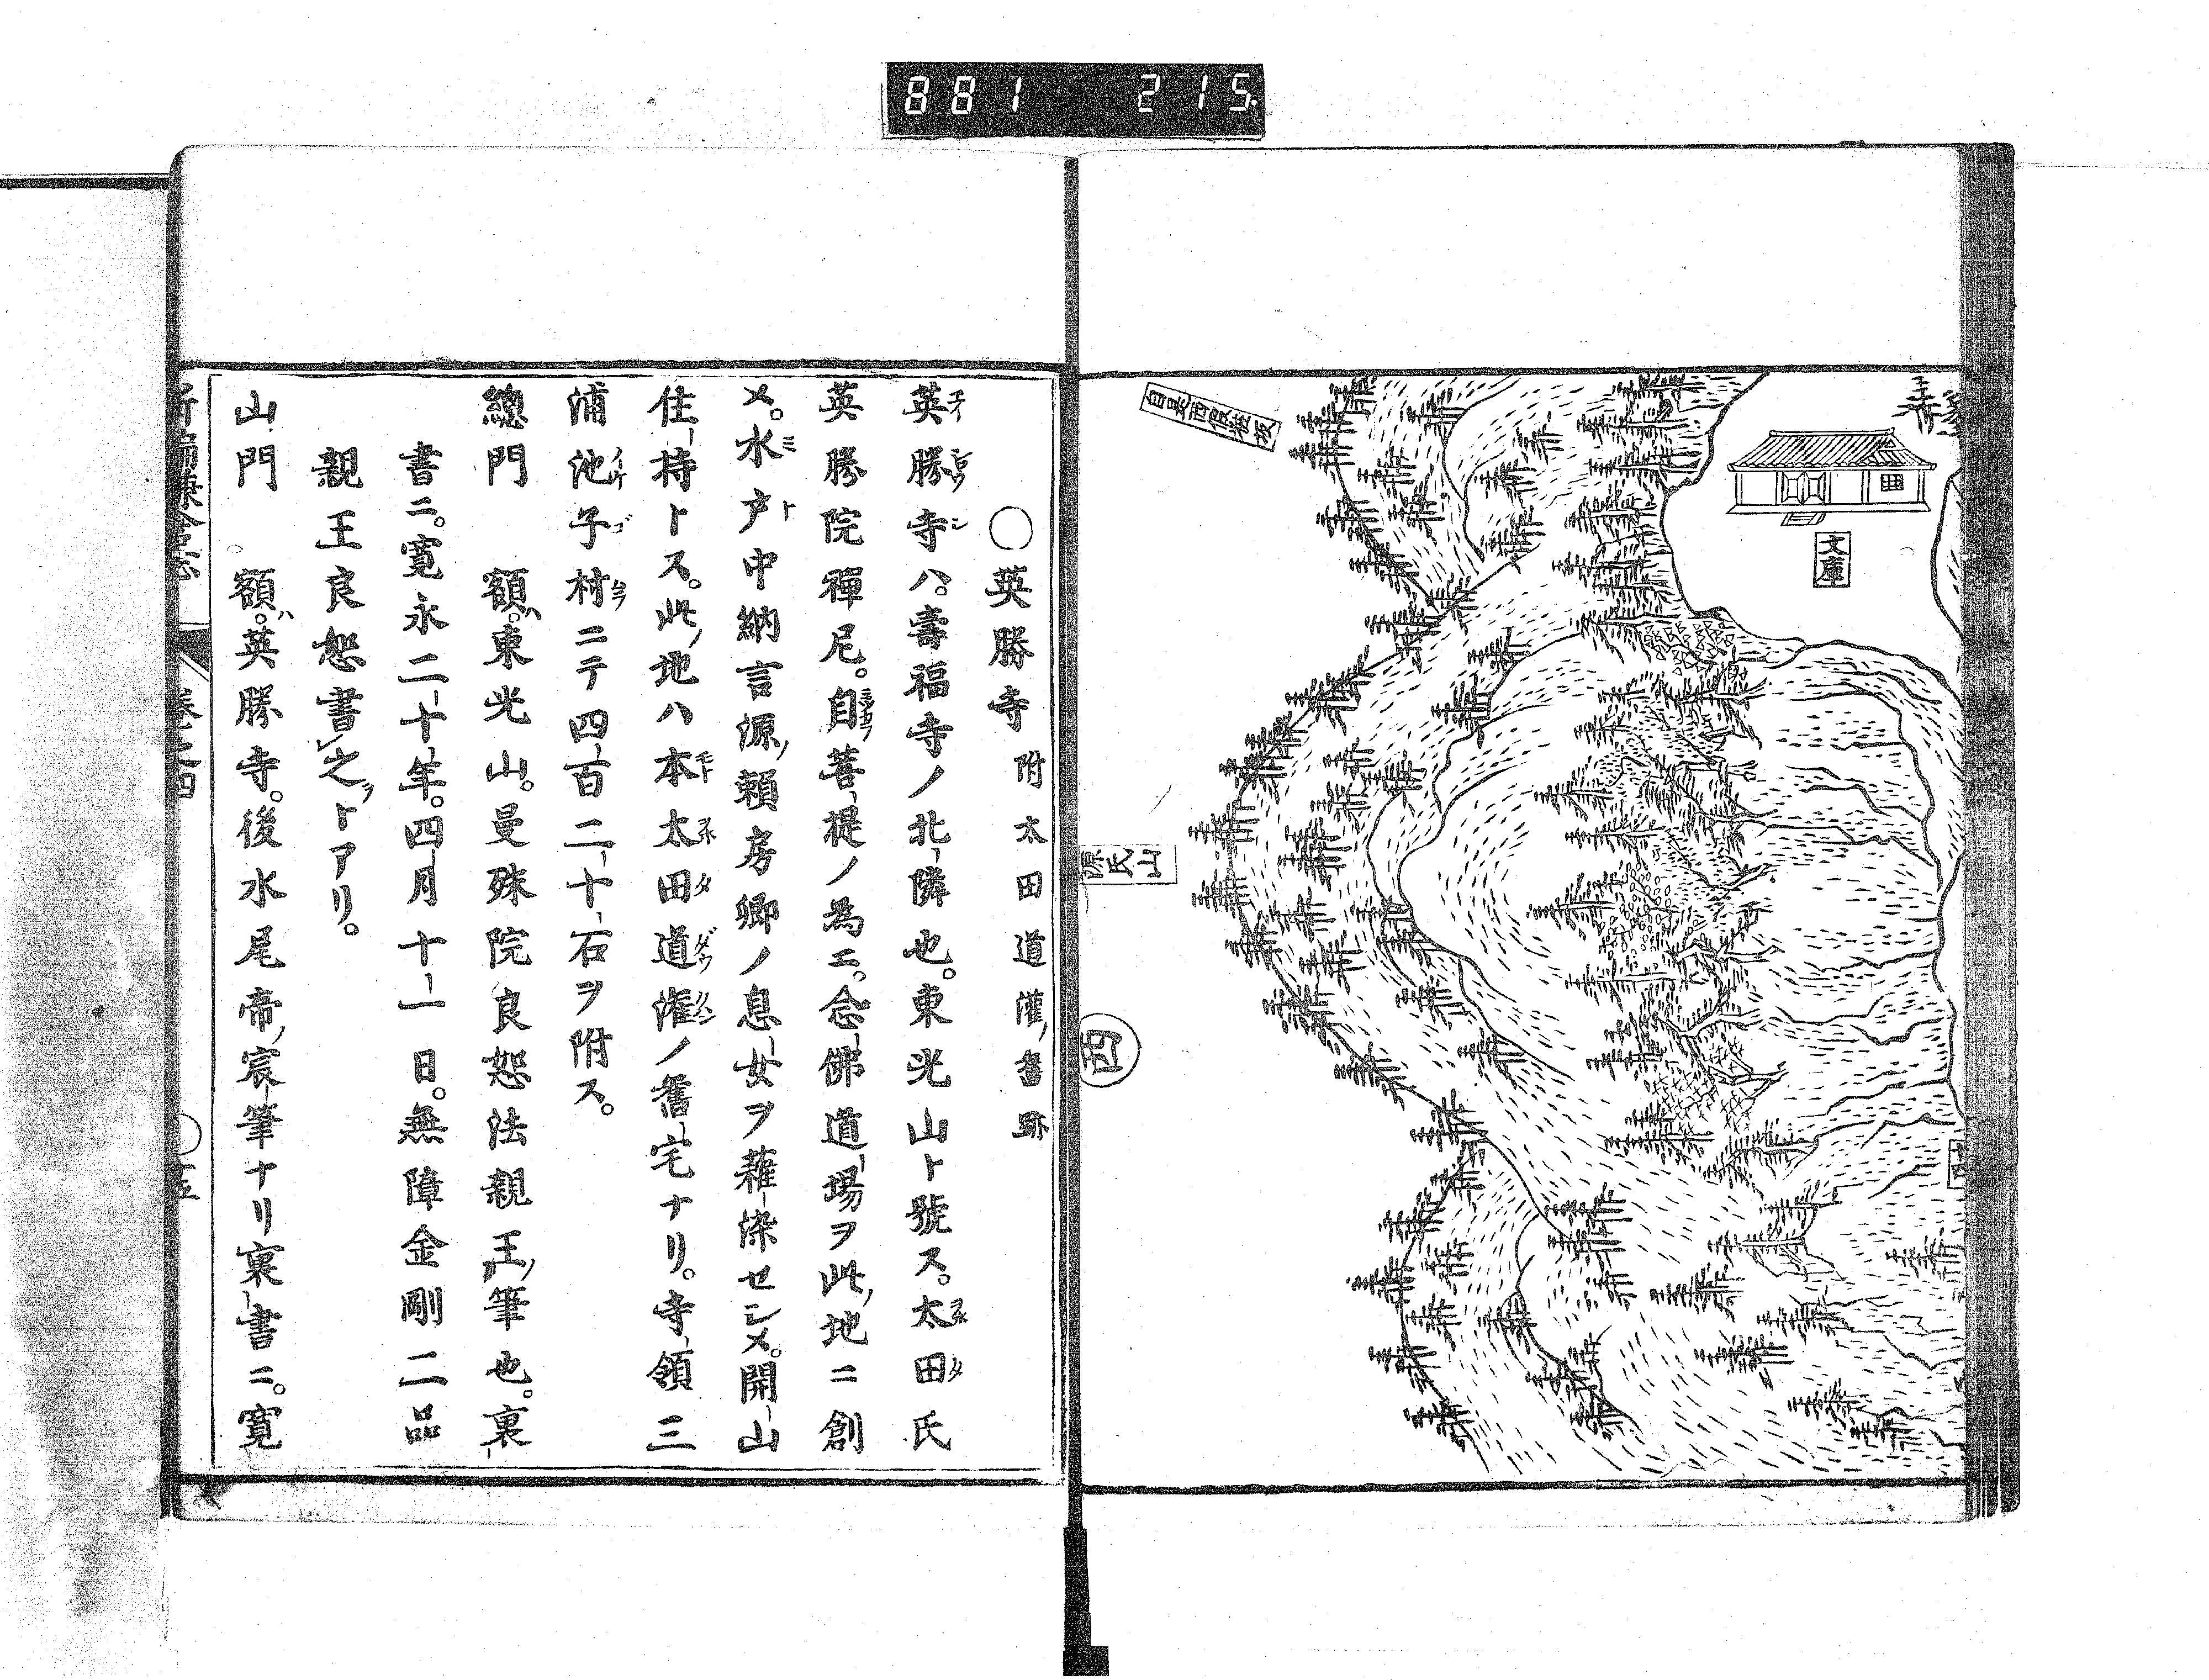 881 215
文庫
自是西假粧坂
源氏山
西
○英勝寺附太田道灌ノ舊跡
英勝寺ハ。壽福寺ノ北隣也。東光山ト號ス。太田氏
英勝院禪尼。自菩提ノ為ニ。念佛道場ヲ此ノ地ニ創
メ。水戸中納言源ノ頼房卿ノ息女ヲ薙染セシメ。開山
住持トス。此ノ地ハ本太田道灌ノ舊宅ナリ。寺領三
浦池子村ニテ四百二十石ヲ附ス。
總門 額ハ。東光山。曼殊院良恕法親王ノ筆也。裏
書ニ。寛永二十年。四月十一日。無障金剛二品
親王良恕書之ヲトアリ。
山門 額ハ。英勝寺。後水尾帝ノ宸筆ナリ裏書ニ。寛
新編鎌倉志 卷之四 ○五